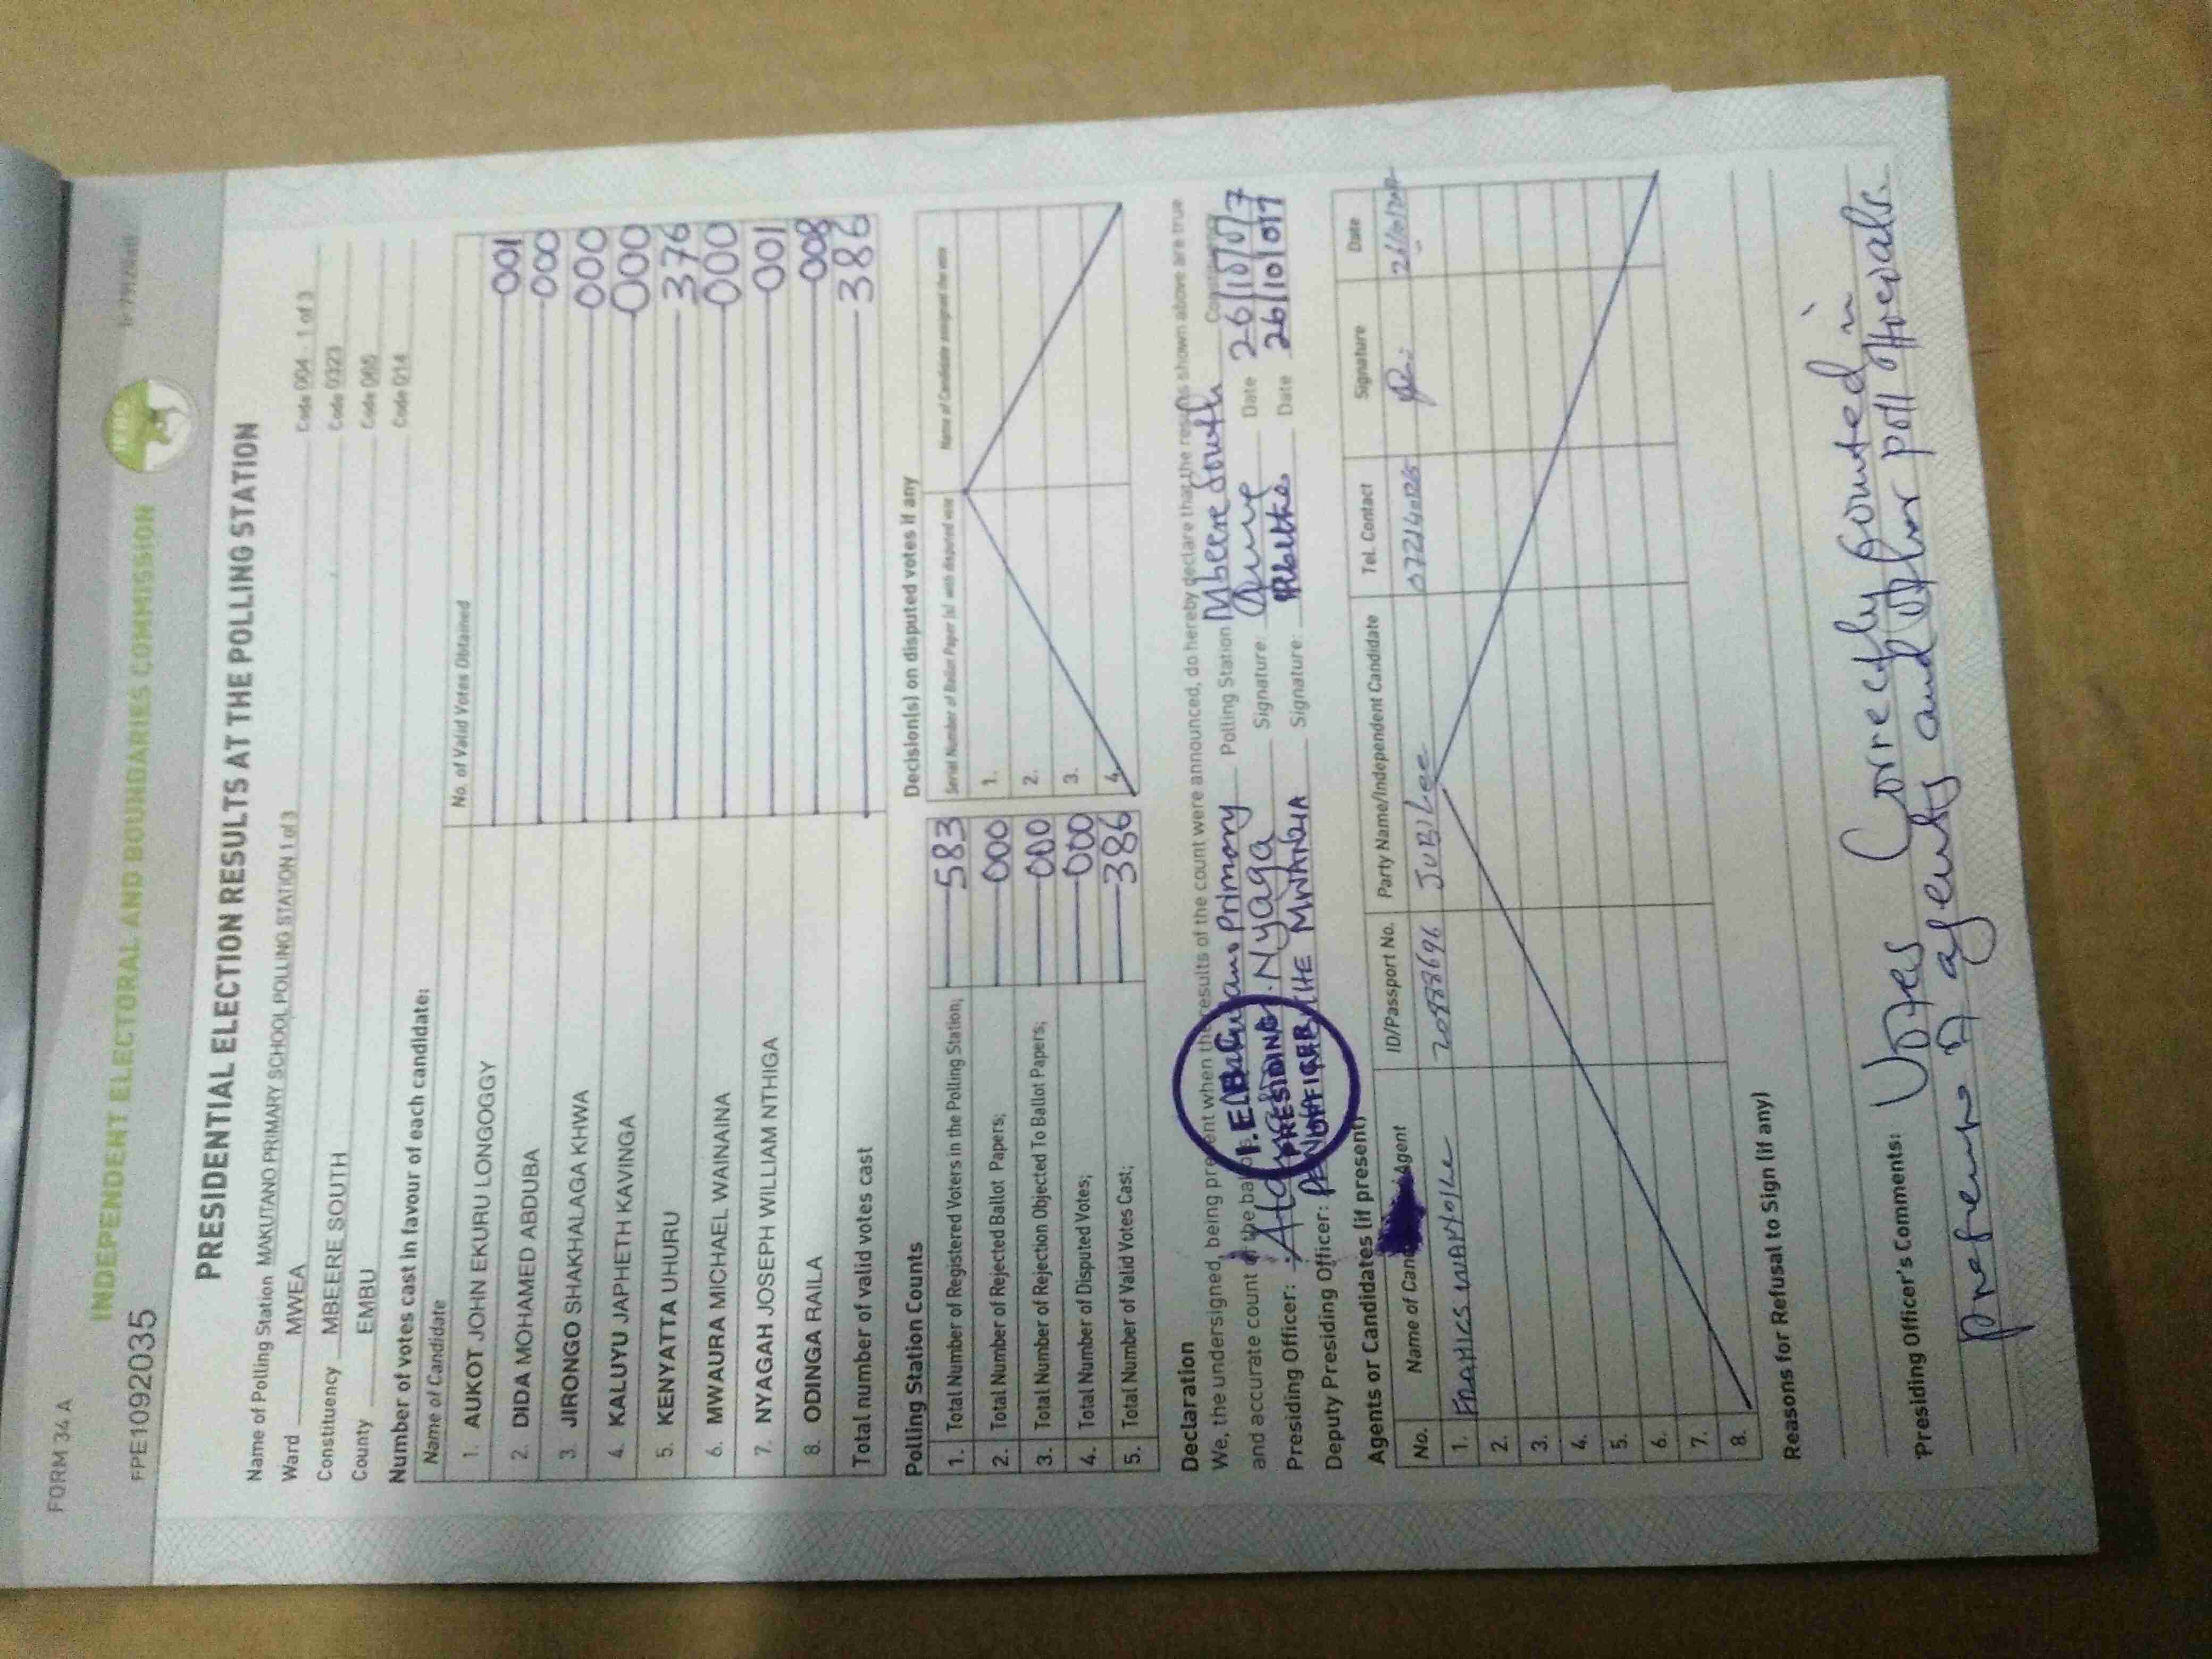 FORM 34 A
INDEPENDENT ELECTORAL AND BOUNDARIES COMMISSION
IEBC
FPE1092035
PRESIDENTIAL ELECTION RESULTS AT THE POLLING STATION
Name of Polling Station MAKUTANO PRIMARY SCHOOL POLLING STATION 1 of 3 Code 004 - 1 of 3
Ward MWEA Code 0323
Constituency MBEERE SOUTH Code 065
County EMBU Code 014
Number of votes cast in favour of each candidate:
Name of Candidate No. of Valid Votes Obtained
1. AUKOT JOHN EKURU LONGOGGY 001
2. DIDA MOHAMED ABDUBA 000
3. JIRONGO SHAKHALAGA KHWA 000
4. KALUYU JAPHETH KAVINGA 000
5. KENYATTA UHURU 376
6. MWAURA MICHAEL WAINAINA 000
7. NYAGAH JOSEPH WILLIAM NTHIGA 001
8. ODINGA RAILA 008
Total number of valid votes cast 386
Polling Station Counts
1. Total Number of Registered Voters in the Polling Station; 583
2. Total Number of Rejected Ballot Papers; 000
3. Total Number of Rejection Objected To Ballot Papers; 000
4. Total Number of Disputed Votes; 000
5. Total Number of Valid Votes Cast; 386
Decision(s) on disputed votes if any
Serial Number of Ballot Paper (s) with disputed vote Name of Candidate assigned the vote
1.
2.
3.
4.
Declaration
We, the undersigned, being present when the results of the count were announced, do hereby declare that the results shown above are true
and accurate count of the ballots Primary Polling Station Mbeere South Constituency
Presiding Officer: Nyaga Signature: Date 26/10/017
Deputy Presiding Officer: MWANDIA Signature: Date 26/10/017
I.E.B.C
PRESIDING
OFFICER
Agents or Candidates (if present)
No. Name of Agent ID/Passport No. Party Name/Independent Candidate Tel. Contact Signature Date
1. JUBILEE
2.
3.
4.
5.
6.
7.
8.
Reasons for Refusal to Sign (if any)
Presiding Officer's Comments: Votes Correctly Counted in
presence of agents and other poll officials.